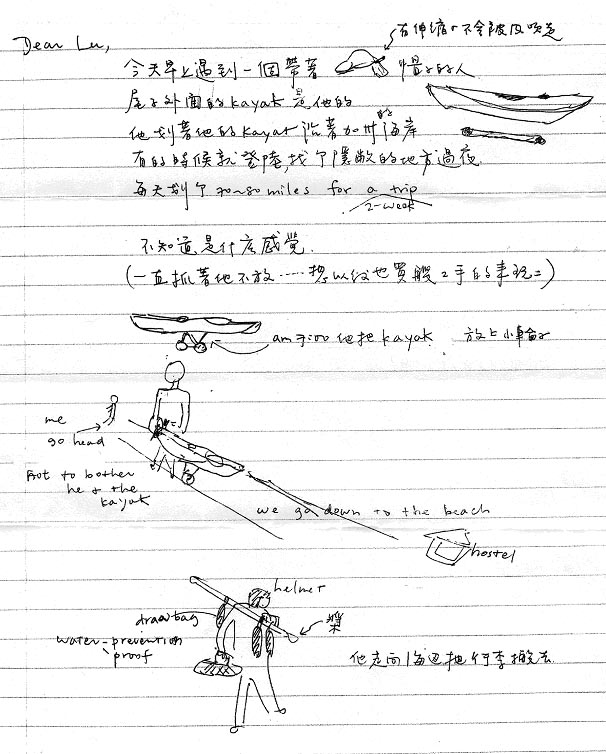 Dear Lu,
有伸縮,不會被風吹走
今天早上遇到一個帶著
帽子的人
屋子外面的kayak是他的
他划著他的kayak沿著加州的海岸
有的時候就登陸,找个隱敝的地方過夜
每天划个 20~30 miles for a trip
2-week
不知道是什広感覺.
(一直抓著他不放……想以後也買艘2手的來玩=)
am 7:00 他把kayak 放上小車輪子
me
go head
Bot to bother
he & the
kayak
we go down to the beach
hostel
helmet
drawbag
water-prevention
proof
槳
他走向海邊把行李搬去